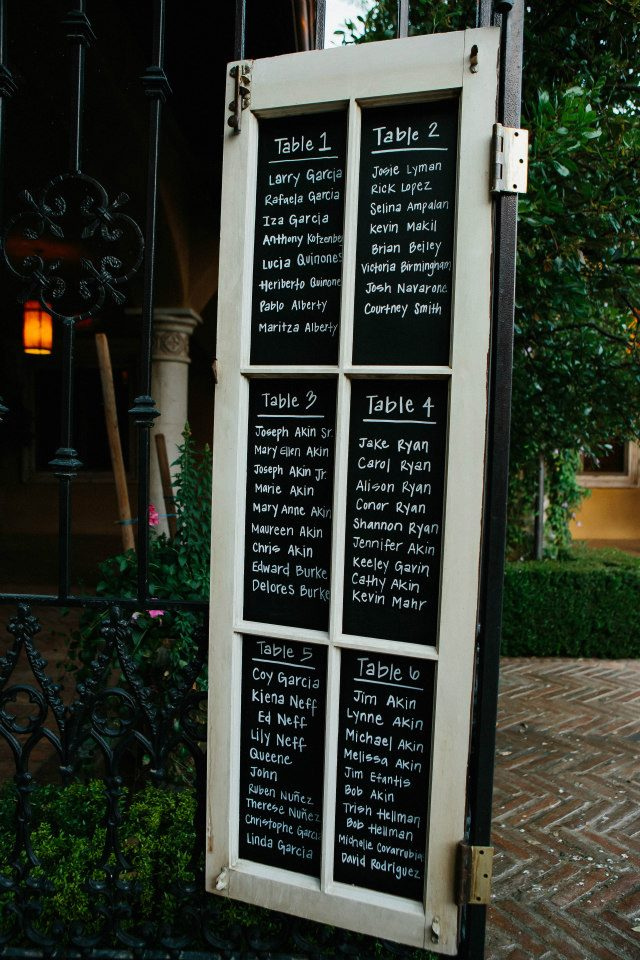 Table 1
Larry Garcia
Rafaela Garcia
Iza Garcia
Anthony Kotzenberg
Lucia Quinones
Heriberto Quinone
Pablo Alberty
Maritza Alberty
Table 2
Josie Lyman
Rick Lopez
Selina Ampalan
Kevin Makil
Brian Beiley
Victoria Birmingham
Josh Navarone
Courtney Smith
Table 3
Joseph Akin Sr.
Mary Ellen Akin
Joseph Akin Jr.
Marie Akin
Mary Anne Akin
Maureen Akin
Chris Akin
Edward Burke
Delores Burke
Table 4
Jake Ryan
Carol Ryan
Alison Ryan
Conor Ryan
Shannon Ryan
Jennifer Akin
Keeley Gavin
Cathy Akin
Kevin Mahr
Table 5
Coy Garcia
Kiena Neff
Ed Neff
Lily Neff
Queene
John
Ruben Nuñez
Therese Nuñez
Christophe Garcia
Linda Garcia
Table 6
Jim Akin
Lynne Akin
Michael Akin
Melissa Akin
Jim Efantis
Bob Akin
Trish Hellman
Bob Hellman
Michelle Covarrubia
David Rodriguez